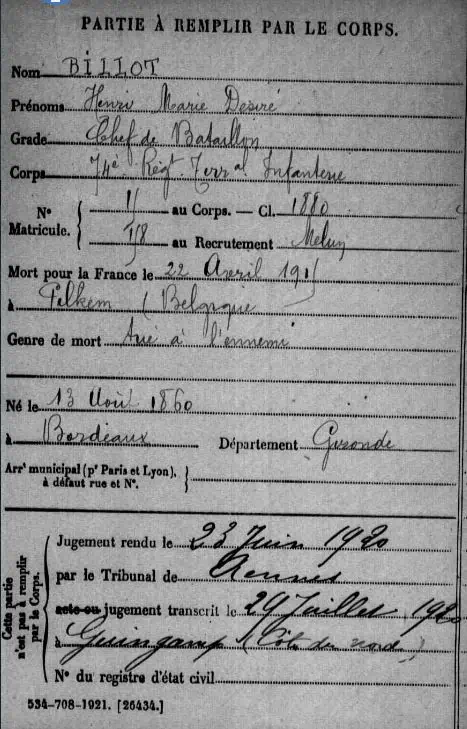 PARTIE À REMPLIR PAR LE CORPS.
Nom BILLOT
Prénoms Henri Marie Désiré
Grade Chef de Bataillon
Corps 74e Régt Terral Infanterie
N° Matricule. { 1 au Corps. — Cl. 1880
58 au Recrutement Melun
Mort pour la France le 22 Avril 1915
à Pilkem (Belgique
Genre de mort Tué à l'ennemi
Né le 13 Août 1860
à Bordeaux Département Gironde
Arrt municipal (pr Paris et Lyon),
à défaut rue et N°. }
Cette partie n'est pas à remplir par le Corps. {
Jugement rendu le 23 Juin 1920
par le Tribunal de Rennes
acte ou jugement transcrit le 29 Juillet 1920
à Guingamp (Côtes du nord)
N° du registre d'état civil
534-708-1921. [26434.]